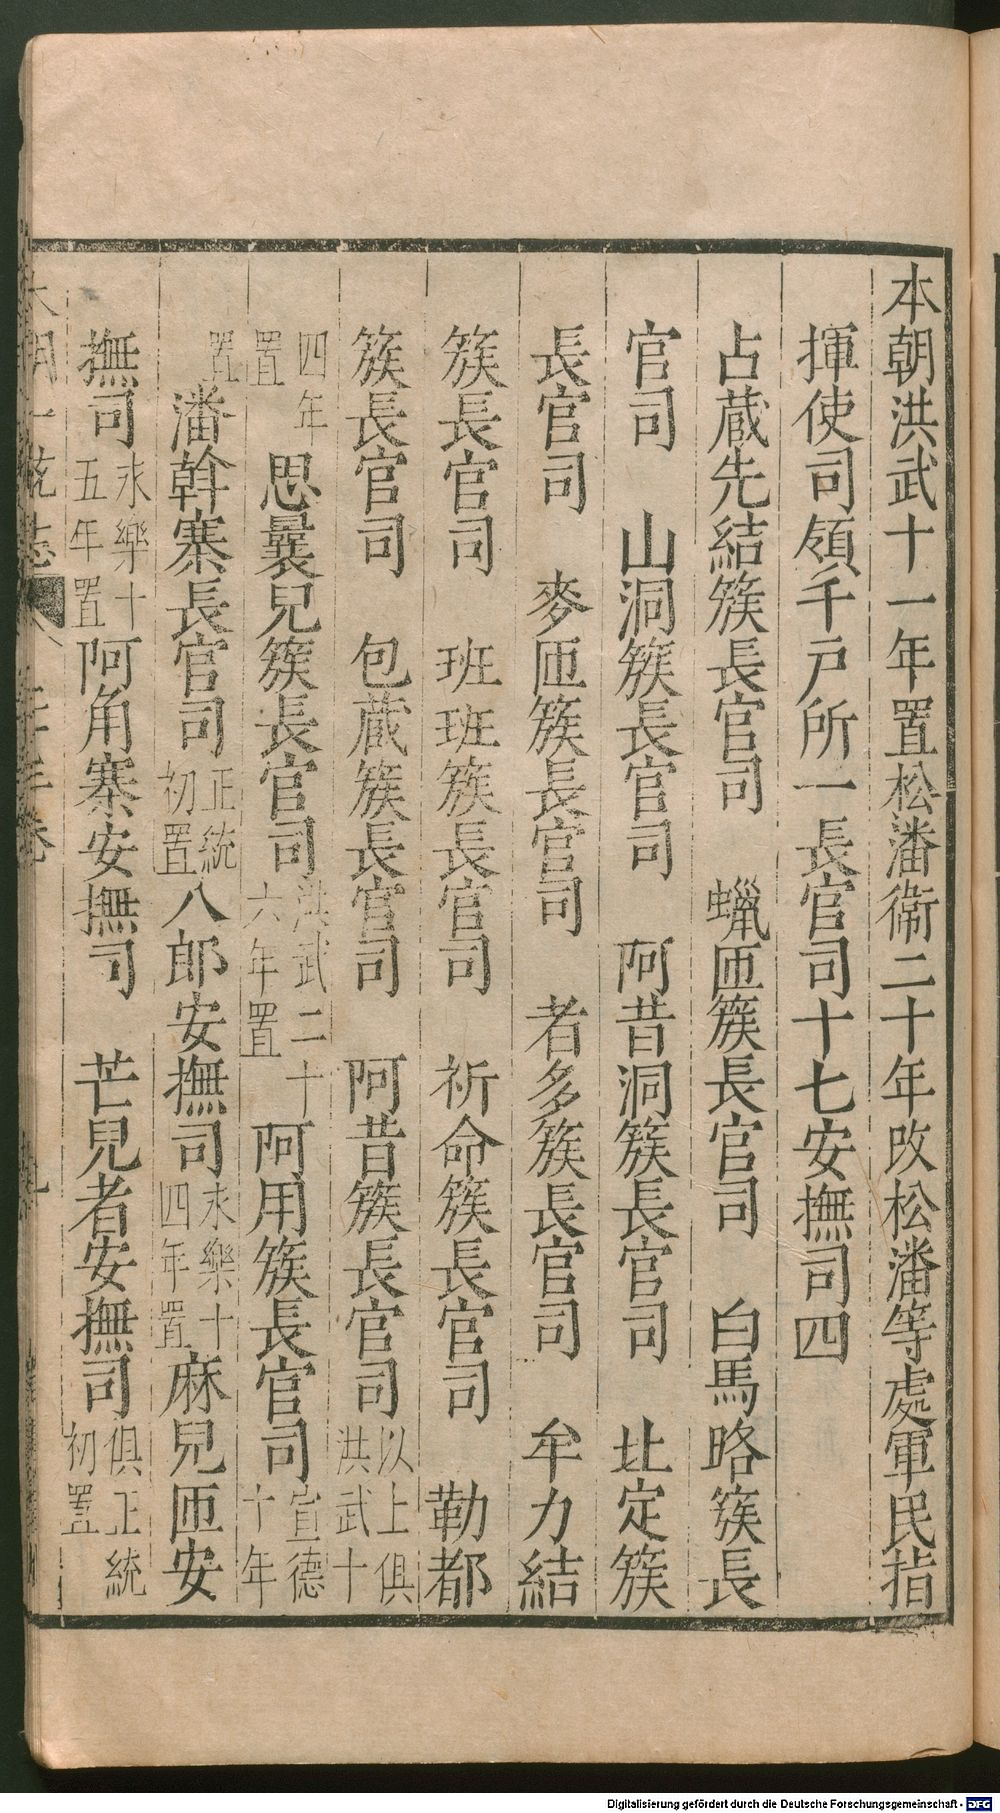 本朝洪武十一年置松潘衛二十年改松潘等處軍民指
揮使司領千戸所一長官司十七安撫司四
占藏先結簇長官司　蠟匝簇長官司　白馬路簇長
官司　山洞簇長官司　阿昔洞簇長官司　北定簇
長官司　麥匝簇長官司　者多簇長官司　牟力結
簇長官司　班班簇長官司　祈命簇長官司　勒都
簇長官司　包藏簇長官司　阿昔簇長官司以上俱洪武十
四年置　思曩兒簇長官司洪武二十六年置　阿用簇長官司宣德十年
置　潘斡寨長官司正統初置八郎安撫司永樂十四年置麻兒匝安
撫司永樂十五年置阿角寨安撫司　芒兒者安撫司俱正統初置
大明一統志
Digitalisierung gefördert durch die Deutsche Forschungsgemeinschaft - DFG